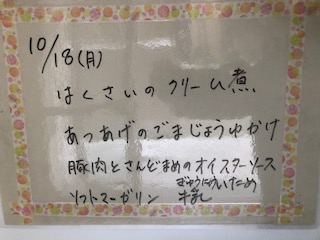 10/18(月)
はくさいの クリーム煮
あつあげのごまじょうゆかけ
豚肉とさんどまめのオイスターソース
ソフトマーガリン 牛乳